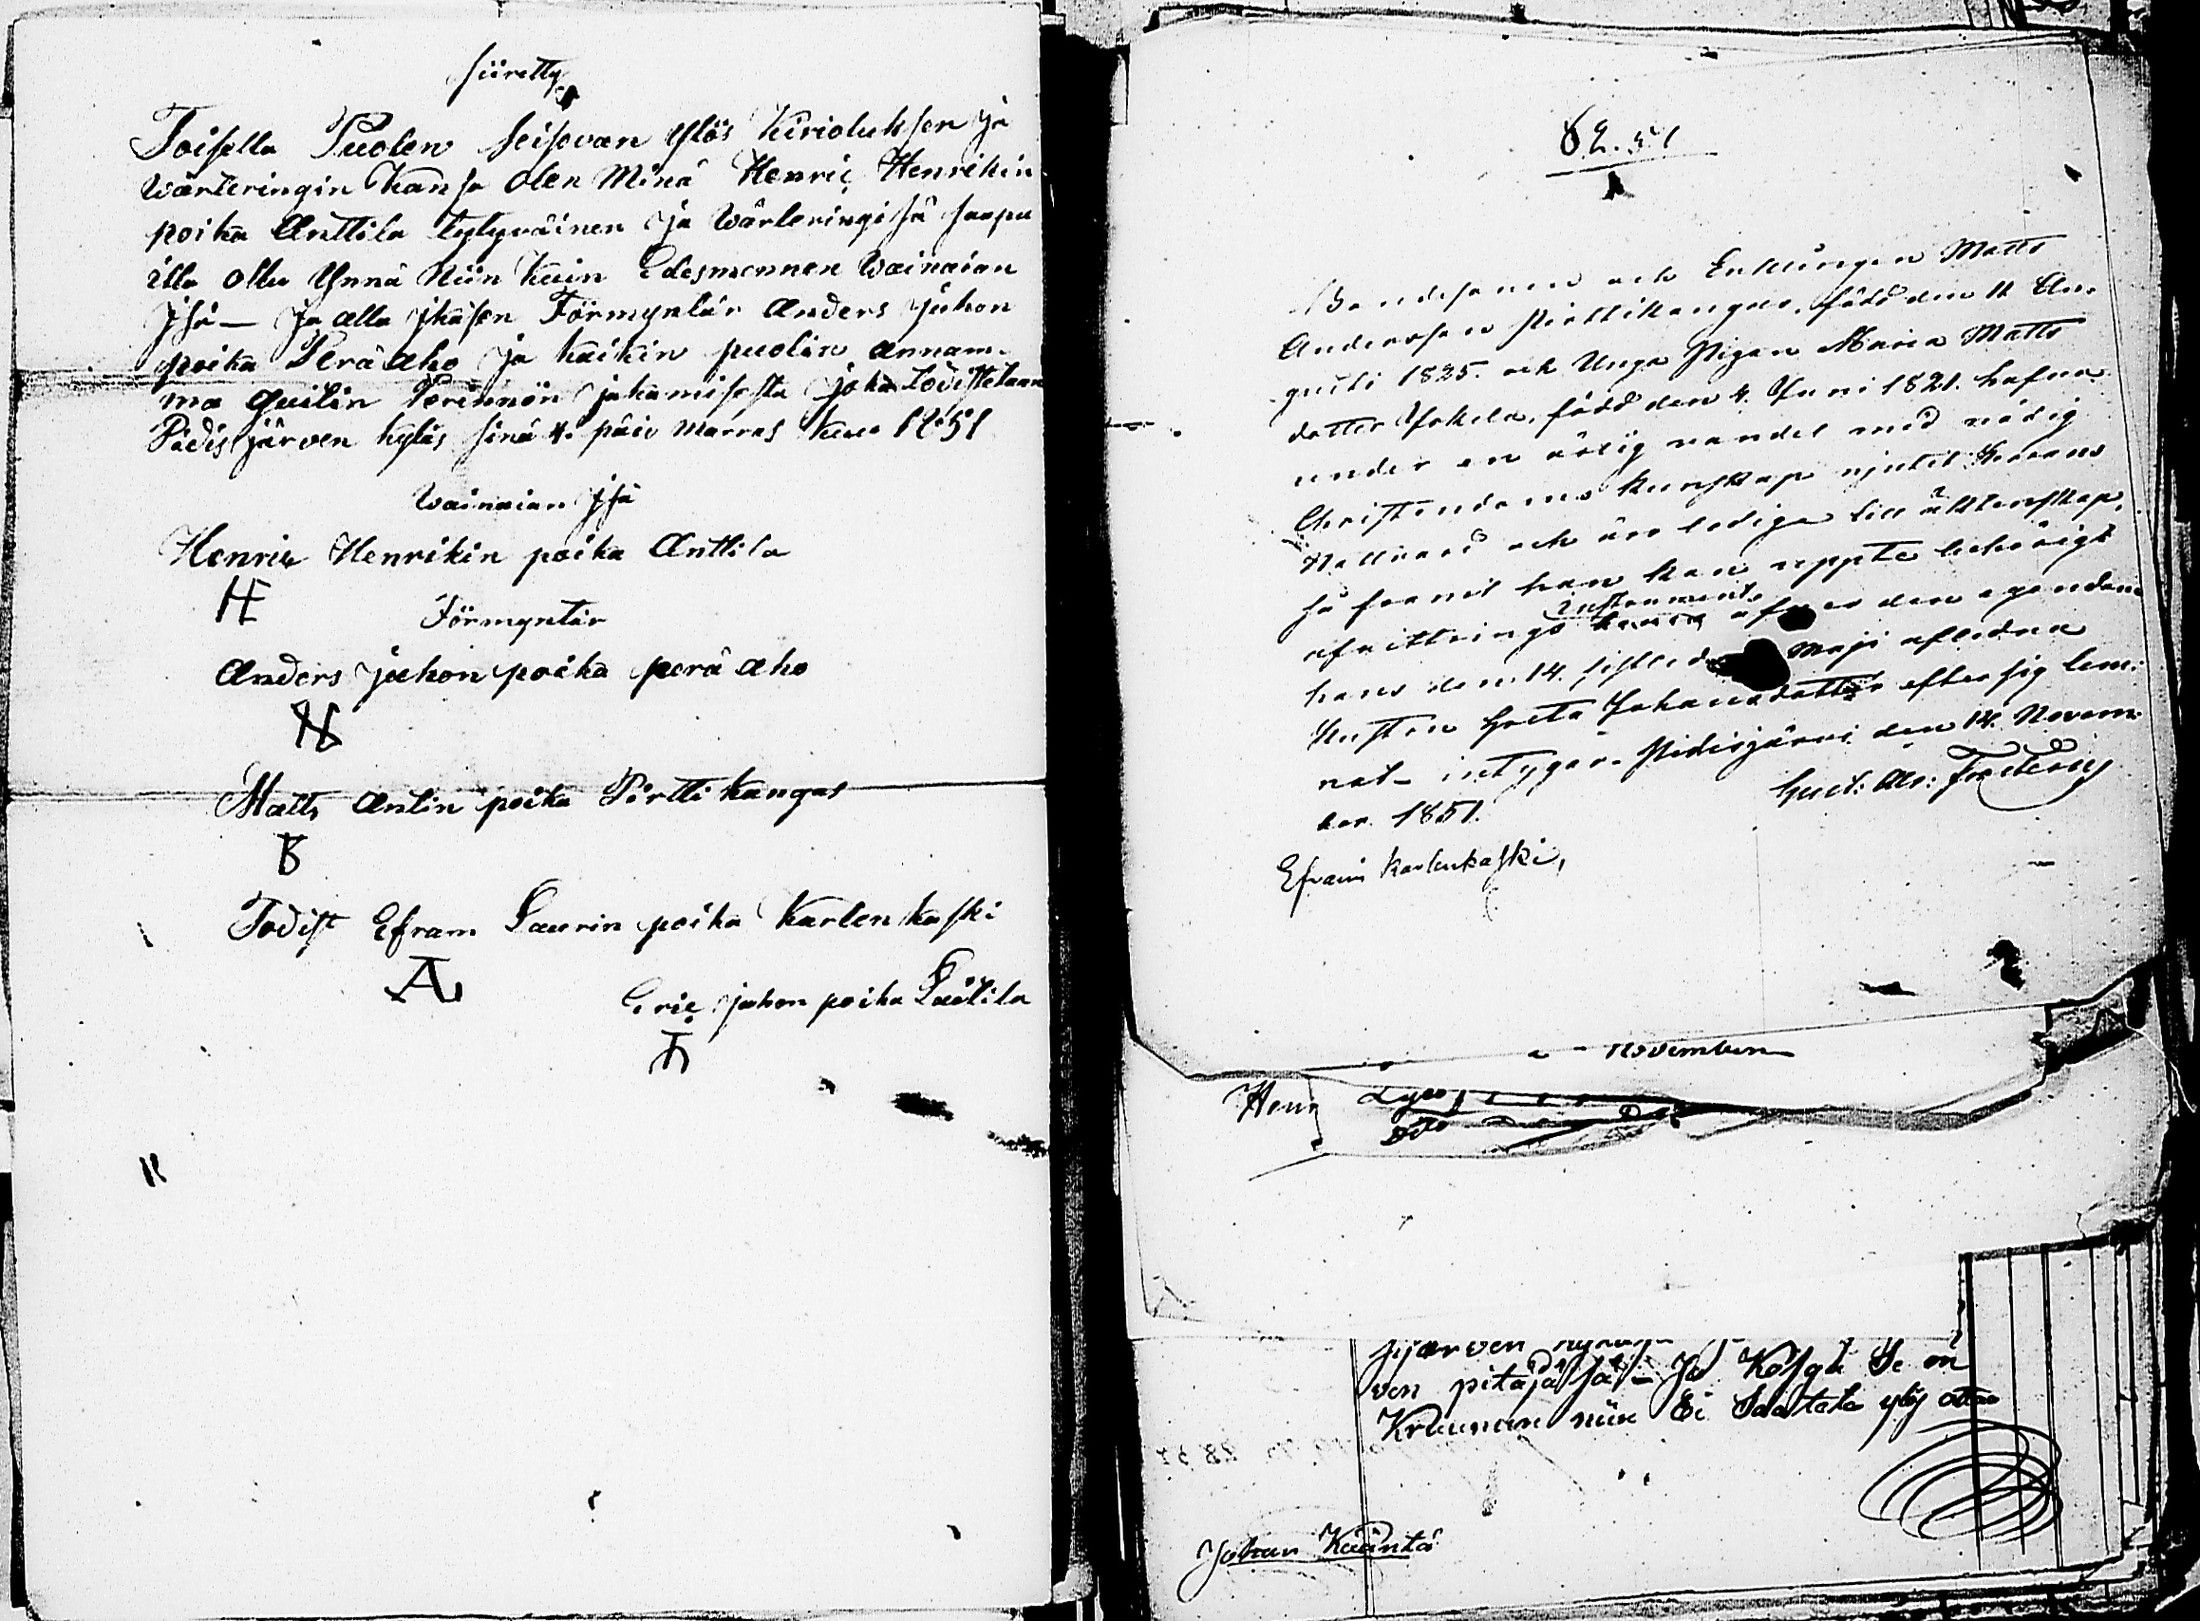 siiretty
Toisella Puolen seisovan ylös Kirioluksen ja
wärteringin Kansa olen Minä Henric Henrikin
poika Anttila tytyväinen ja Wärteringisä saapu
illa ollu Ynnä Niin kuin Edesmennen Wainaian
Jsä — Ja alla jkäsen Förmyntär Anders Juhon
poika Perä aho ja kaikin puolin annam-
ma Quitin Perinnön jakamisesta joka todistetaan
Pidisjärven kyläs sinä 4. päiv marras kuu 1851
Wainaian Jsä
Henric Henrikin poika Anttila
Förmyntär
Anders juhon poika perä aho
Matts Antin poika Pirttikangas
Todist Efram Laurin poika Karlenkaski
Eric juhon poika
62. 51
Bondesonen och Enklingen Matts
Andersson Pirttikangas, född den 11 Au-
gusti 1825. och Unga Pigan Maria Matts
dotter Jokela, född den 4. Juni 1821. hafva
under en ärlig vandel med nödig
Christendoms kunskap njutit Herrans
Nattvard och äro lediga till äktenskap,
så framt han kan uppte behörigt
afvittrings Instrument öfver den egendom
hans den 14. sistled Maji aflidna
Hustru Greta Johansdotter efter sig lem-
nat – intygar. Pidisjärvi den 14. Novem-
ber 1851.
Gust: Ad:
Efraim Karlukaski,
November
Henr
sjärven
ven pitäjäsä – Ja Koska Se on
Kruunun niin Ei Saateta ylös ottaa
Johan Kääntä